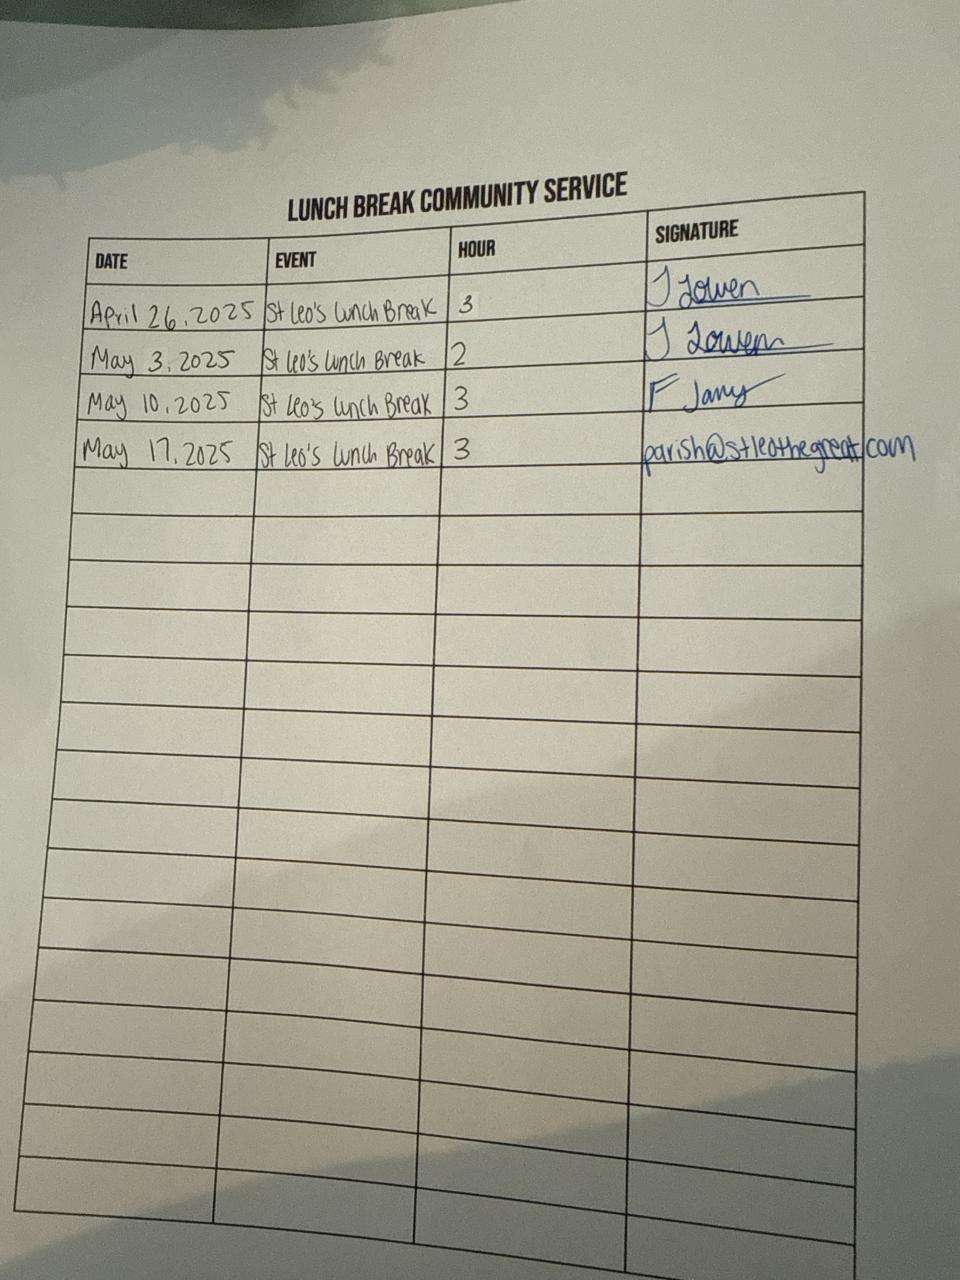 LUNCH BREAK COMMUNITY SERVICE
DATE EVENT HOUR SIGNATURE
April 26, 2025 St Leo's Lunch Break 3 J Lowen
May 3, 2025 St Leo's Lunch Break 2 J Lowen
May 10, 2025 St Leo's Lunch Break 3 F
May 17, 2025 St Leo's Lunch Break 3 parish@stleothegreat.com